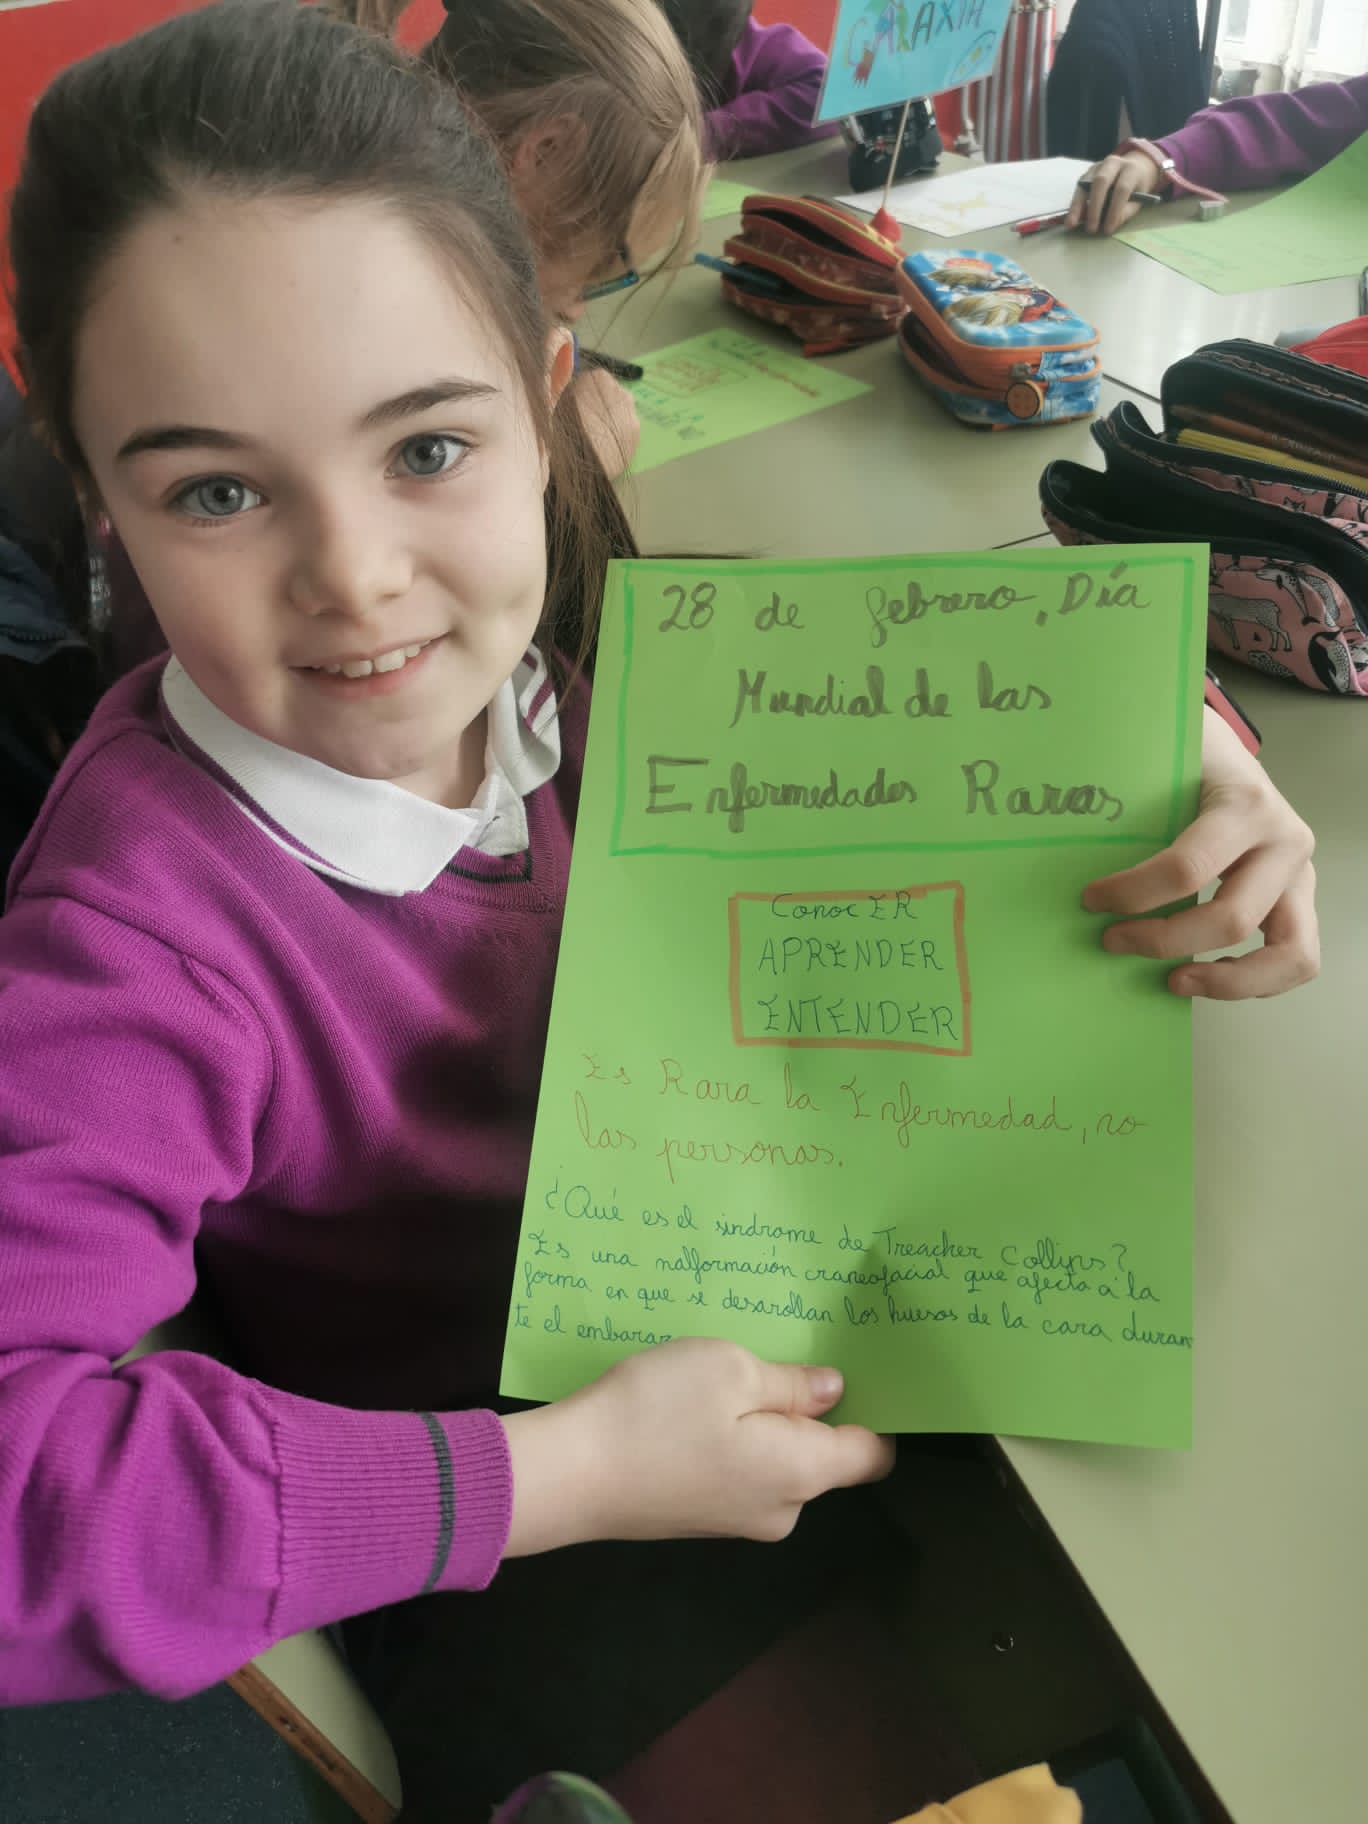 GALAXIA
28 de febrero, Día
Mundial de las
Enfermedades Raras
ConocER
APRENDER
ENTENDER
Es Rara la Enfermedad, no
las personas.
¿Qué es el síndrome de Treacher Collins?
Es una malformación craneofacial que afecta a la
forma en que se desarollan los huesos de la cara duran
te el embaraz